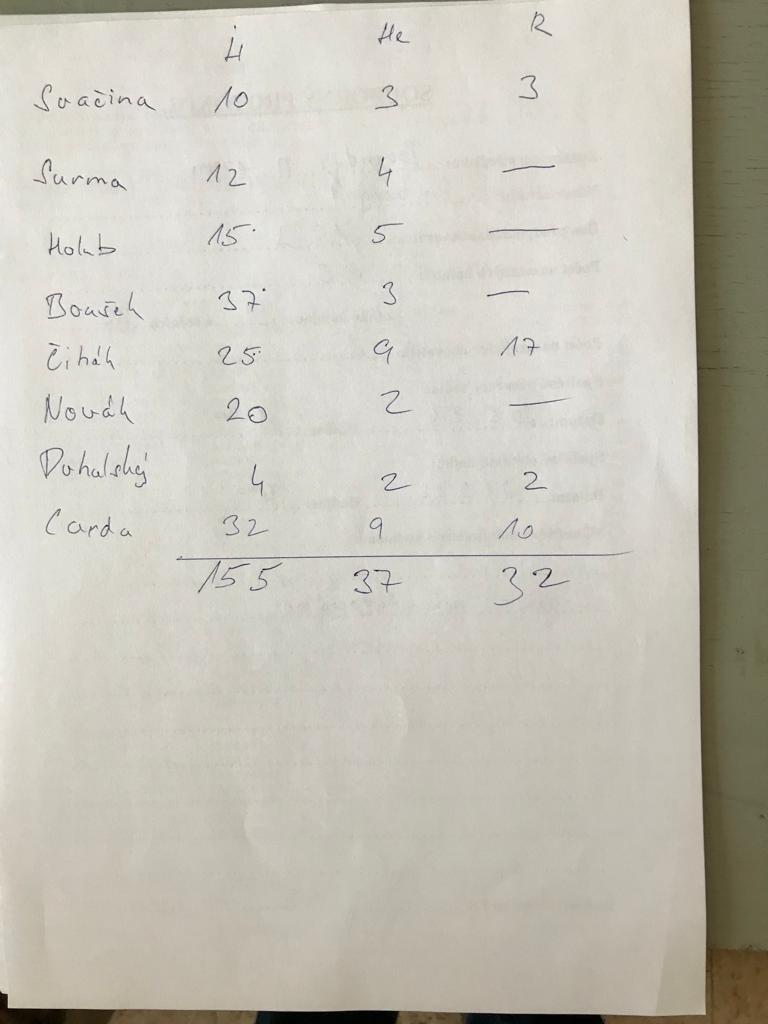 H He R
Svačina 10 3 3
Surma 12 4 —
Holub 15 5 —
Boušek 37 3 —
Čihák 25 9 17
Novák 20 2 —
Duhalský 4 2 2
Čarda 32 9 10
155 37 32